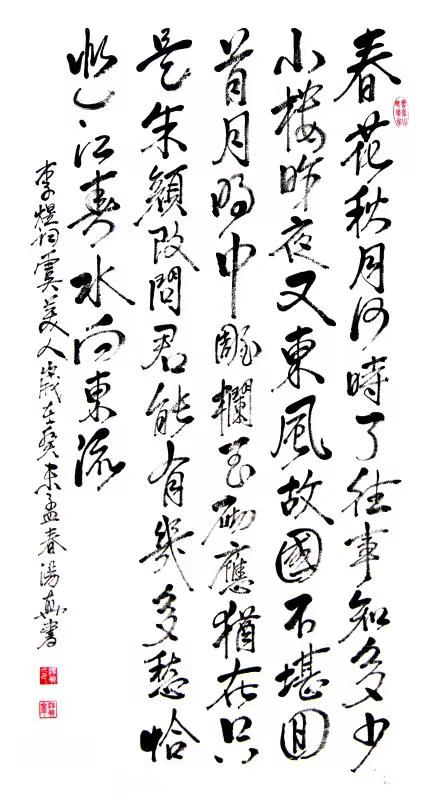 春花秋月何時了往事知多少
小樓昨夜又東風故國不堪回
首月明中雕欄玉砌應猶在只
是朱顏改問君能有幾多愁恰
似一江春水向東流
李煜詞虞美人歲在癸未孟春湯書